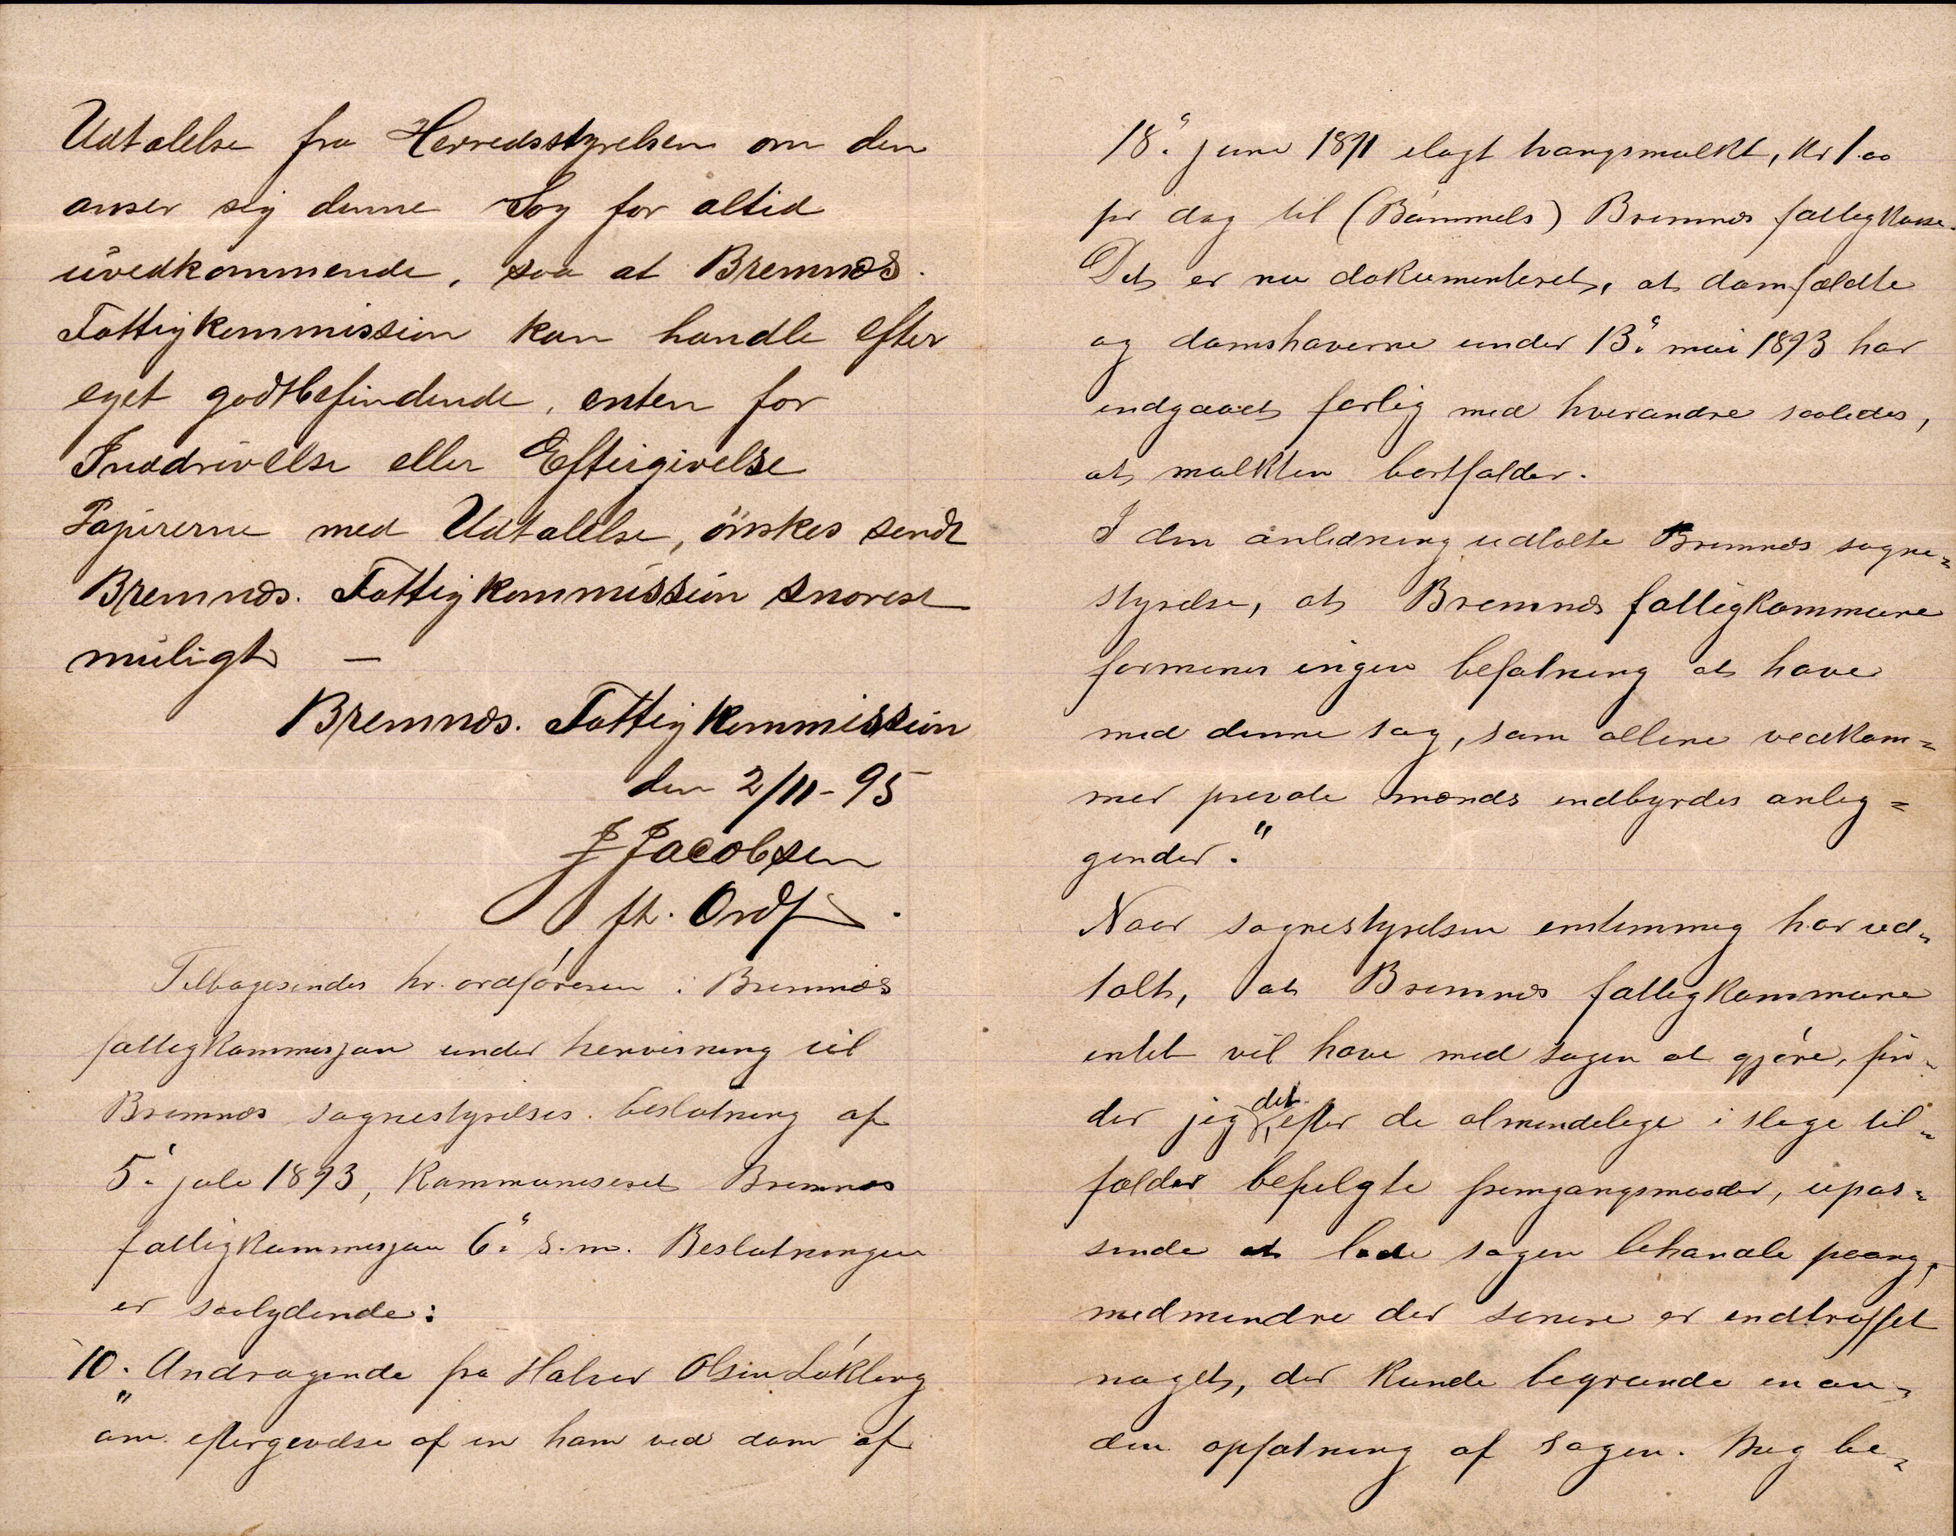 Udtalelse fra Herredsstyrelsen om den
anser sig denne Sag for altid
uvedkommende, saa at Bremnæs.
Fattigkommission kan handle efter
eget godtbefindende, enten for
Inddrivelse eller Eftergivelse
Papirerne med Udtalelse, önskes sendt
Bremnæs. Fattigkommission snarest
muligt —
Bremnæs. Fattigkommission
den 2/11-95
J Jacobsen
ft. Ordf.
Tilbagesendes hr. ordføreren i Bremnæs
fattigkommisjon under henvisning til
Bremnæs sognestyrelses beslutning af
5. juli 1893, kommuniseret Bremnæs
fattigkommisjon 6. s.m. Beslutningen
er saalydende:
"10. Andragende fra Halvor Olsen Løkling
om eftergivelse af en ham ved dom af
18. juni 1891 ilagt tvangsmulkt, kr 1.00
pr dag til (Bømmels) Bremnæs fattigkasse.
Det er nu dokumenteret, at domfældte
og domshaverne under 13. mai 1893 har
indgaaet forlig med hverandre saaledes,
at mulkten bortfalder.
I den anledning udtalte Bremnæs sogne-
styrelse, at Bremnæs fattigkommune
formener ingen befatning at have
med denne sag, som allene vedkom-
mer private mænds indbyrdes anlig-
gender."
Naar sognestyrelsen enstemmig har ud-
talt, at Bremnæs fattigkommune
intet vil have med sagen at gjøre, fin-
der jeg det, efter de almindelige i slige til-
fælder befulgte fremgangsmaader, upas-
sende at lade sagen behandle paany,
medmindre der senere er indtruffet
noget, der kunde begrunde en an-
den opfatning af sagen. Mig be-